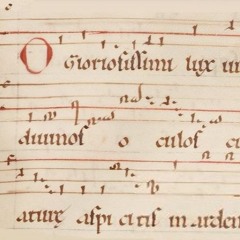 O Gloriosissimi lux ui
diuinos o culos cu
ature aspi citis in arden